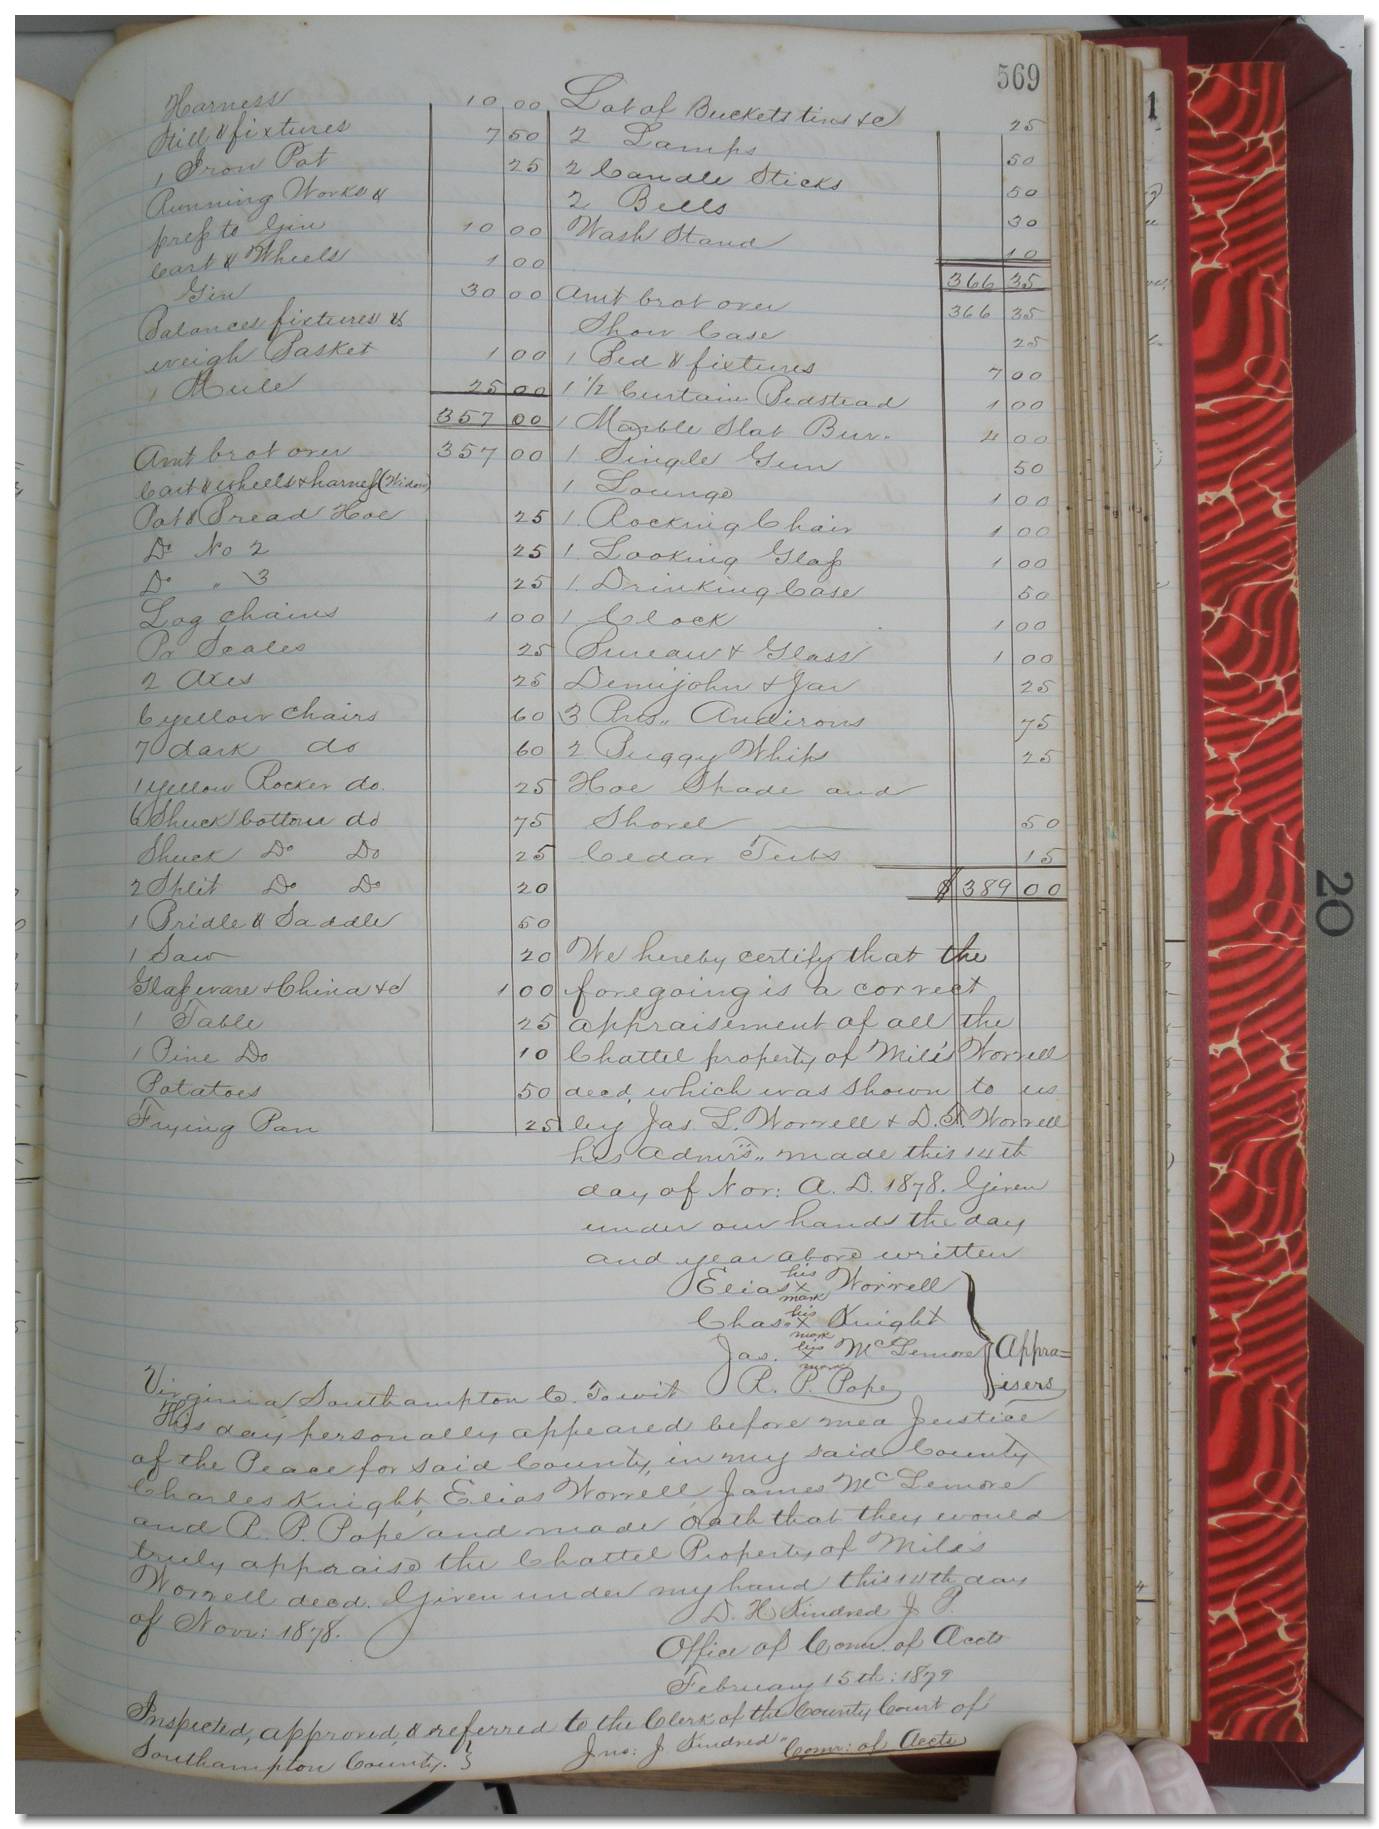 569
Harness 10 00
Still & fixtures 7 50
1 Iron Pot 25
Running Works &
press to Gin 10 00
Cart & Wheels 1 00
Gin 30 00
Balances fixtures &
weigh Basket 1 00
1 Mule 25 00
357 00
Amt brot over 357 00
Cart & wheels & harness (Widow)
Pot & Bread Hoe 25
Do No 2 25
Do " 3 25
Log chains 1 00
Pr Scales 25
2 Axes 25
6 yellow chairs 60
7 dark do 60
1 yellow Rocker do. 25
6 Shuck bottom do 75
Shuck Do Do 25
2 Split Do Do 20
1 Bridle & Saddle 50
1 Saw 20
Glassware & China &c 1 00
1 Table 25
1 Pine Do 10
Potatoes 50
Frying Pan 25
Lot of Buckets tins &c 25
2 Lamps 50
2 Candle Sticks 50
2 Bells 30
Wash Stand 10
366 35
Amt brot over 366 35
Show Case 25
1 Bed & fixtures 7 00
1 1/2 Curtain Bedstead 1 00
1 Marble Slab Bur. 4 00
1 Single Gun 50
1 Lounge 1 00
1 Rocking Chair 1 00
1 Looking Glass 1 00
1 Drinking Case 50
1 Clock 1 00
Bureau & Glass 1 00
Demijohn & Jar 25
3 Prs,, Andirons 75
2 Buggy Whips 25
Hoe Spade and
Shovel 50
Cedar Tubs 15
$ 389 00
We hereby certify that the
foregoing is a correct
appraisement of all the
Chattel property of Miles Worrell
decd, which was shown to us
by Jas L. Worrell & D. F. Worrell
his Admrs,, made this 14th
day of Nov: A. D. 1878. Given
under our hands the day
and year above written
Elias his X mark Worrell
Chas. his X mark Knight
Jas. his X mark McLemore
R. P. Pope
Appra=
isers
Virginia Southampton Co. Towit
This day personally appeared before me a Justice
of the Peace for said County, in my said County
Charles Knight, Elias Worrell, James McLemore
and R. P. Pope and made oath that they would
truly appraise the Chattel Property of Miles
Worrell decd. Given under my hand this 14th day
of Novr: 1878.
D. H. Kindred J. P.
Office of Comr. of Accts
February 15th: 1879
Inspected, approved, & referred to the Clerk of the County Court of
Southampton County. }
Jno: J. Kindred Comr: of Accts
1
20